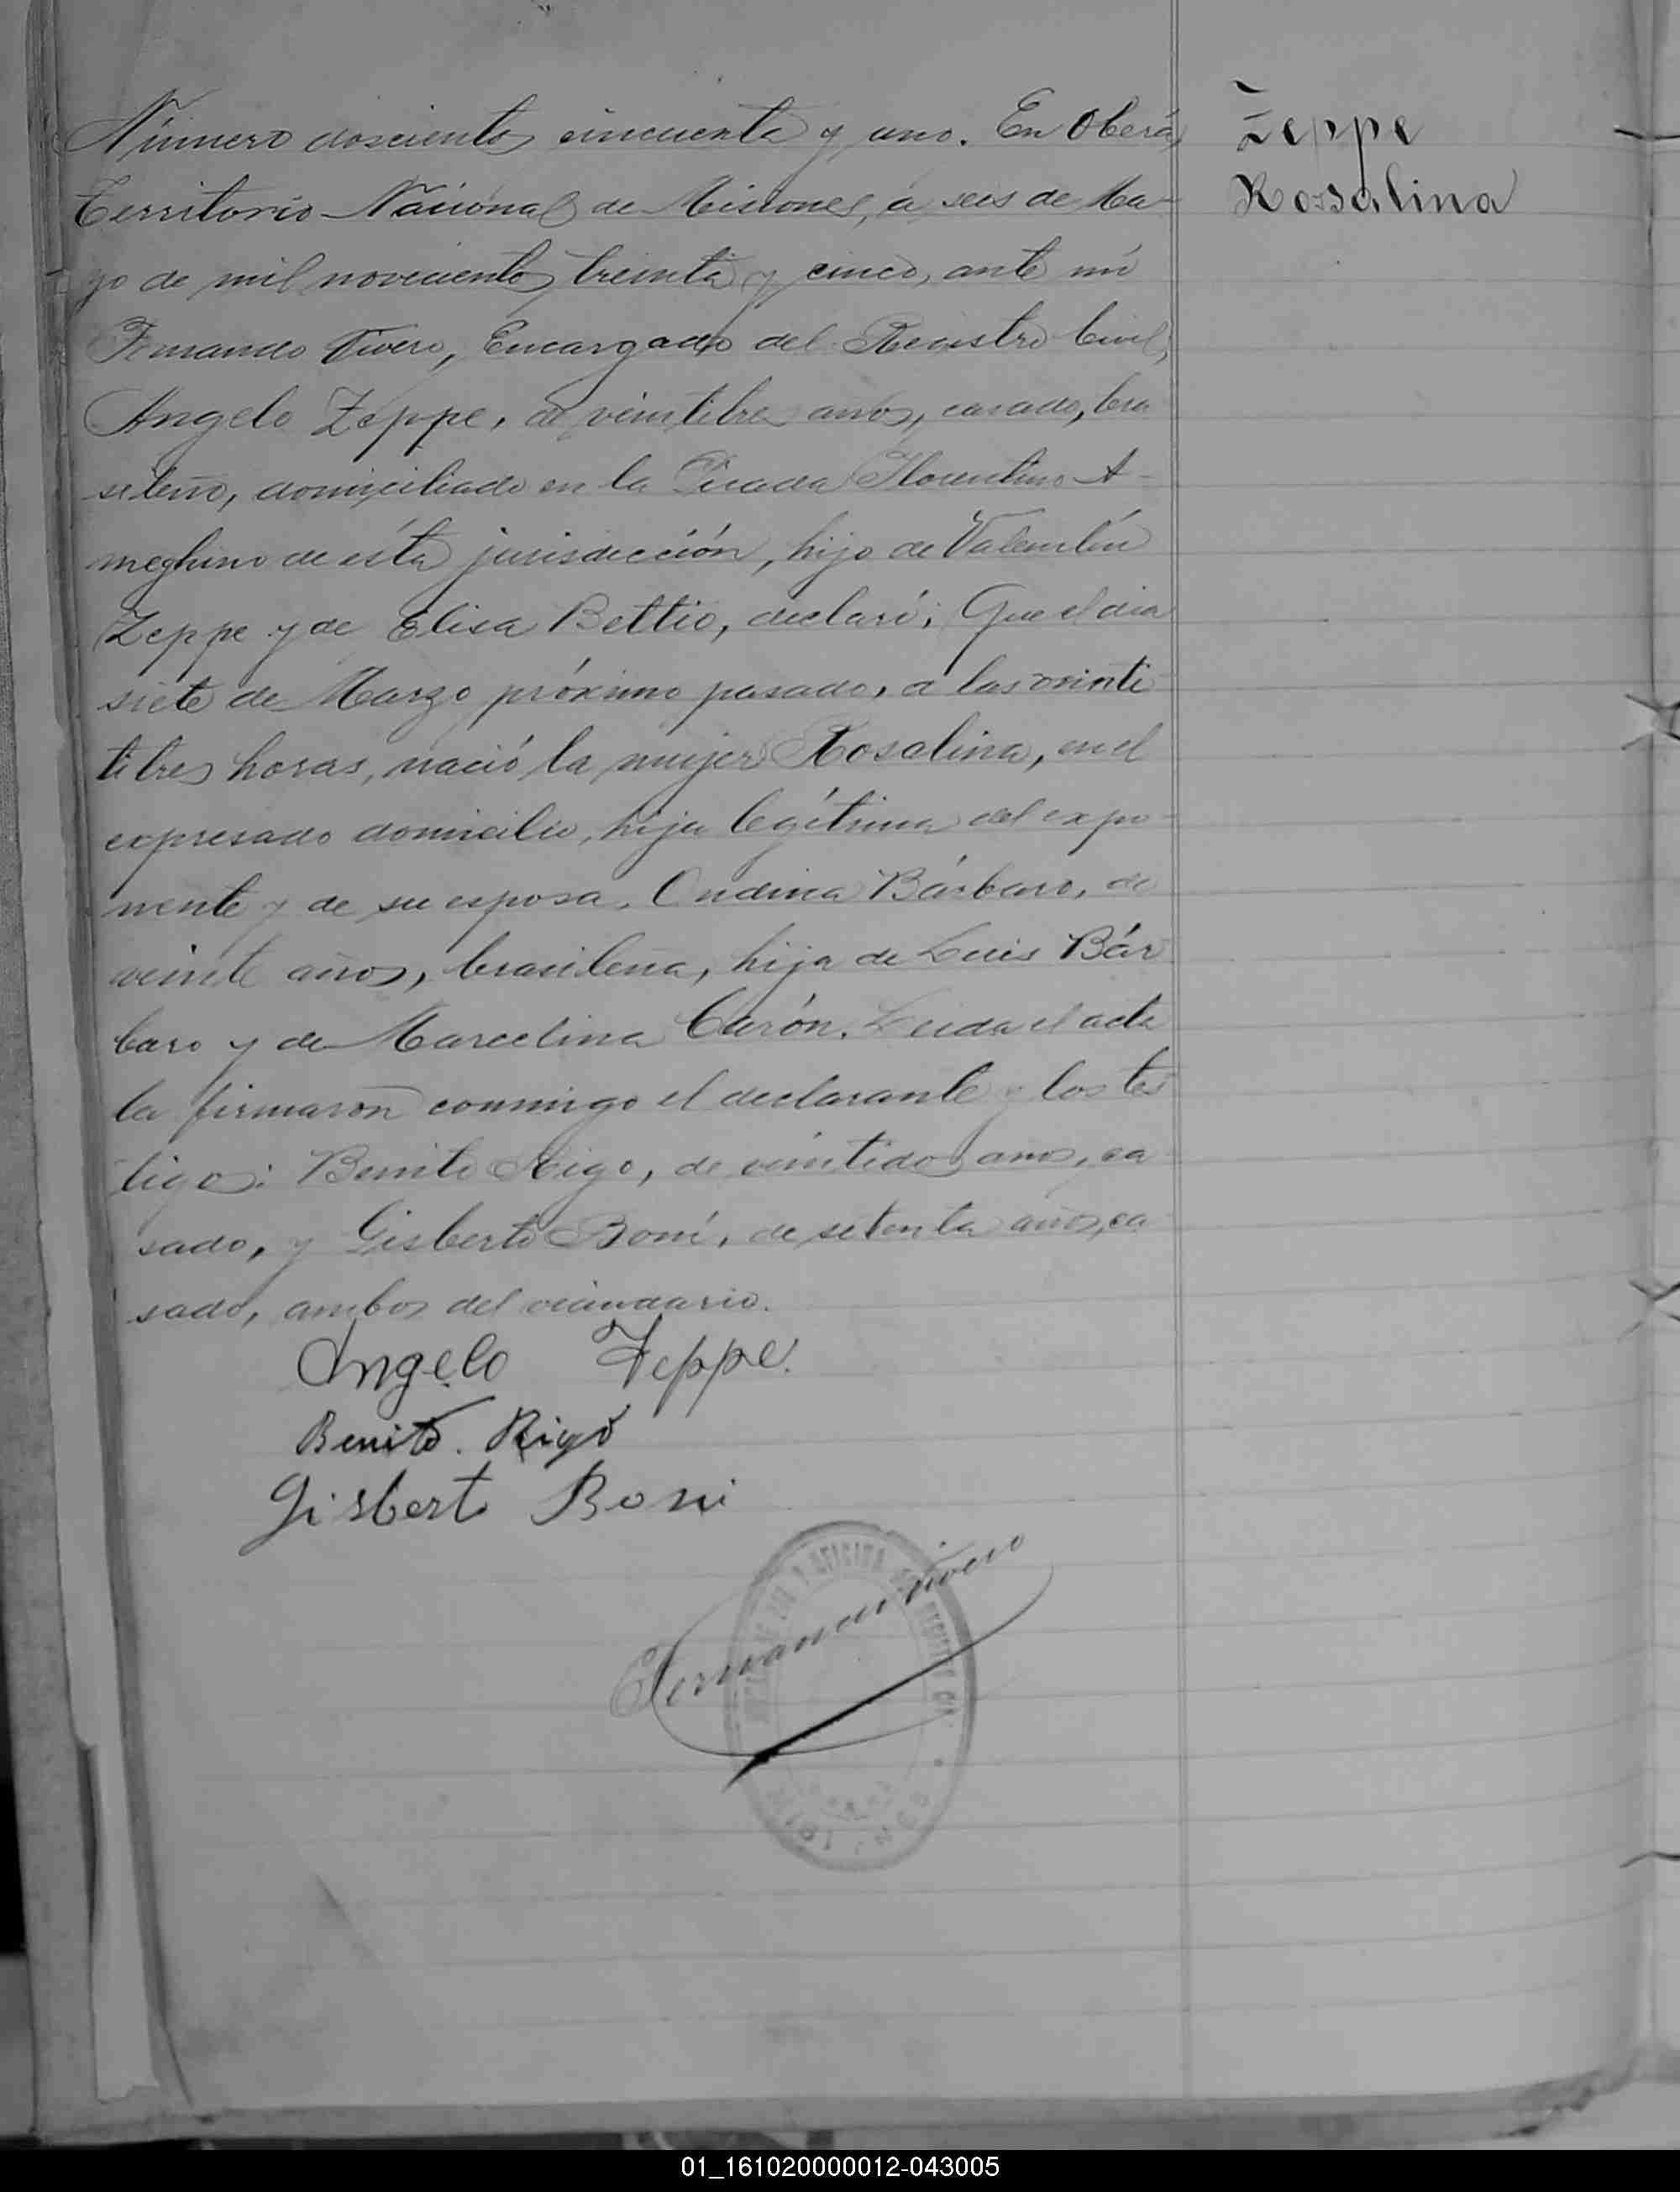 Número doscientos cincuenta y uno. En Oberá,
Territorio Nacional de Misiones, a seis de Ma-
yo de mil novecientos treinta y cinco, ante mí
Fernando Vivero, Encargado del Registro Civil,
Angelo Zeppe, de veintitres años, casado, bra
sileño, domiciliado en la Picada Florentino A-
meghino de ésta jurisdicción, hijo de Valentín
Zeppe y de Elisa Bettio, declaró; Que el dia
siete de Marzo próximo pasado, a las veinti
titres horas, nació la mujer Rosalina, en el
expresado domicilio, hija legítima del expo-
nente y de su esposa, Ondina Bárbaro, de
veinte años, brasileña, hija de Luis Bár
baro y de Marcelina Carón. Leida el acta
la firmaron conmigo el declarante y los tes
tigos: Benito Rigo, de veintidos años, ca
sado, y Gisberto Boni, de setenta años, ca
sado, ambos del vecindario.
Angelo Zeppe.
Benito. Rigo
Gisberto Boni
Fernando Vivero
Zeppe
Rosalina
01_161020000012-043005